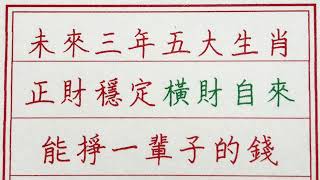 未來三年五大生肖
正財穩定橫財自來
能掙一輩子的錢